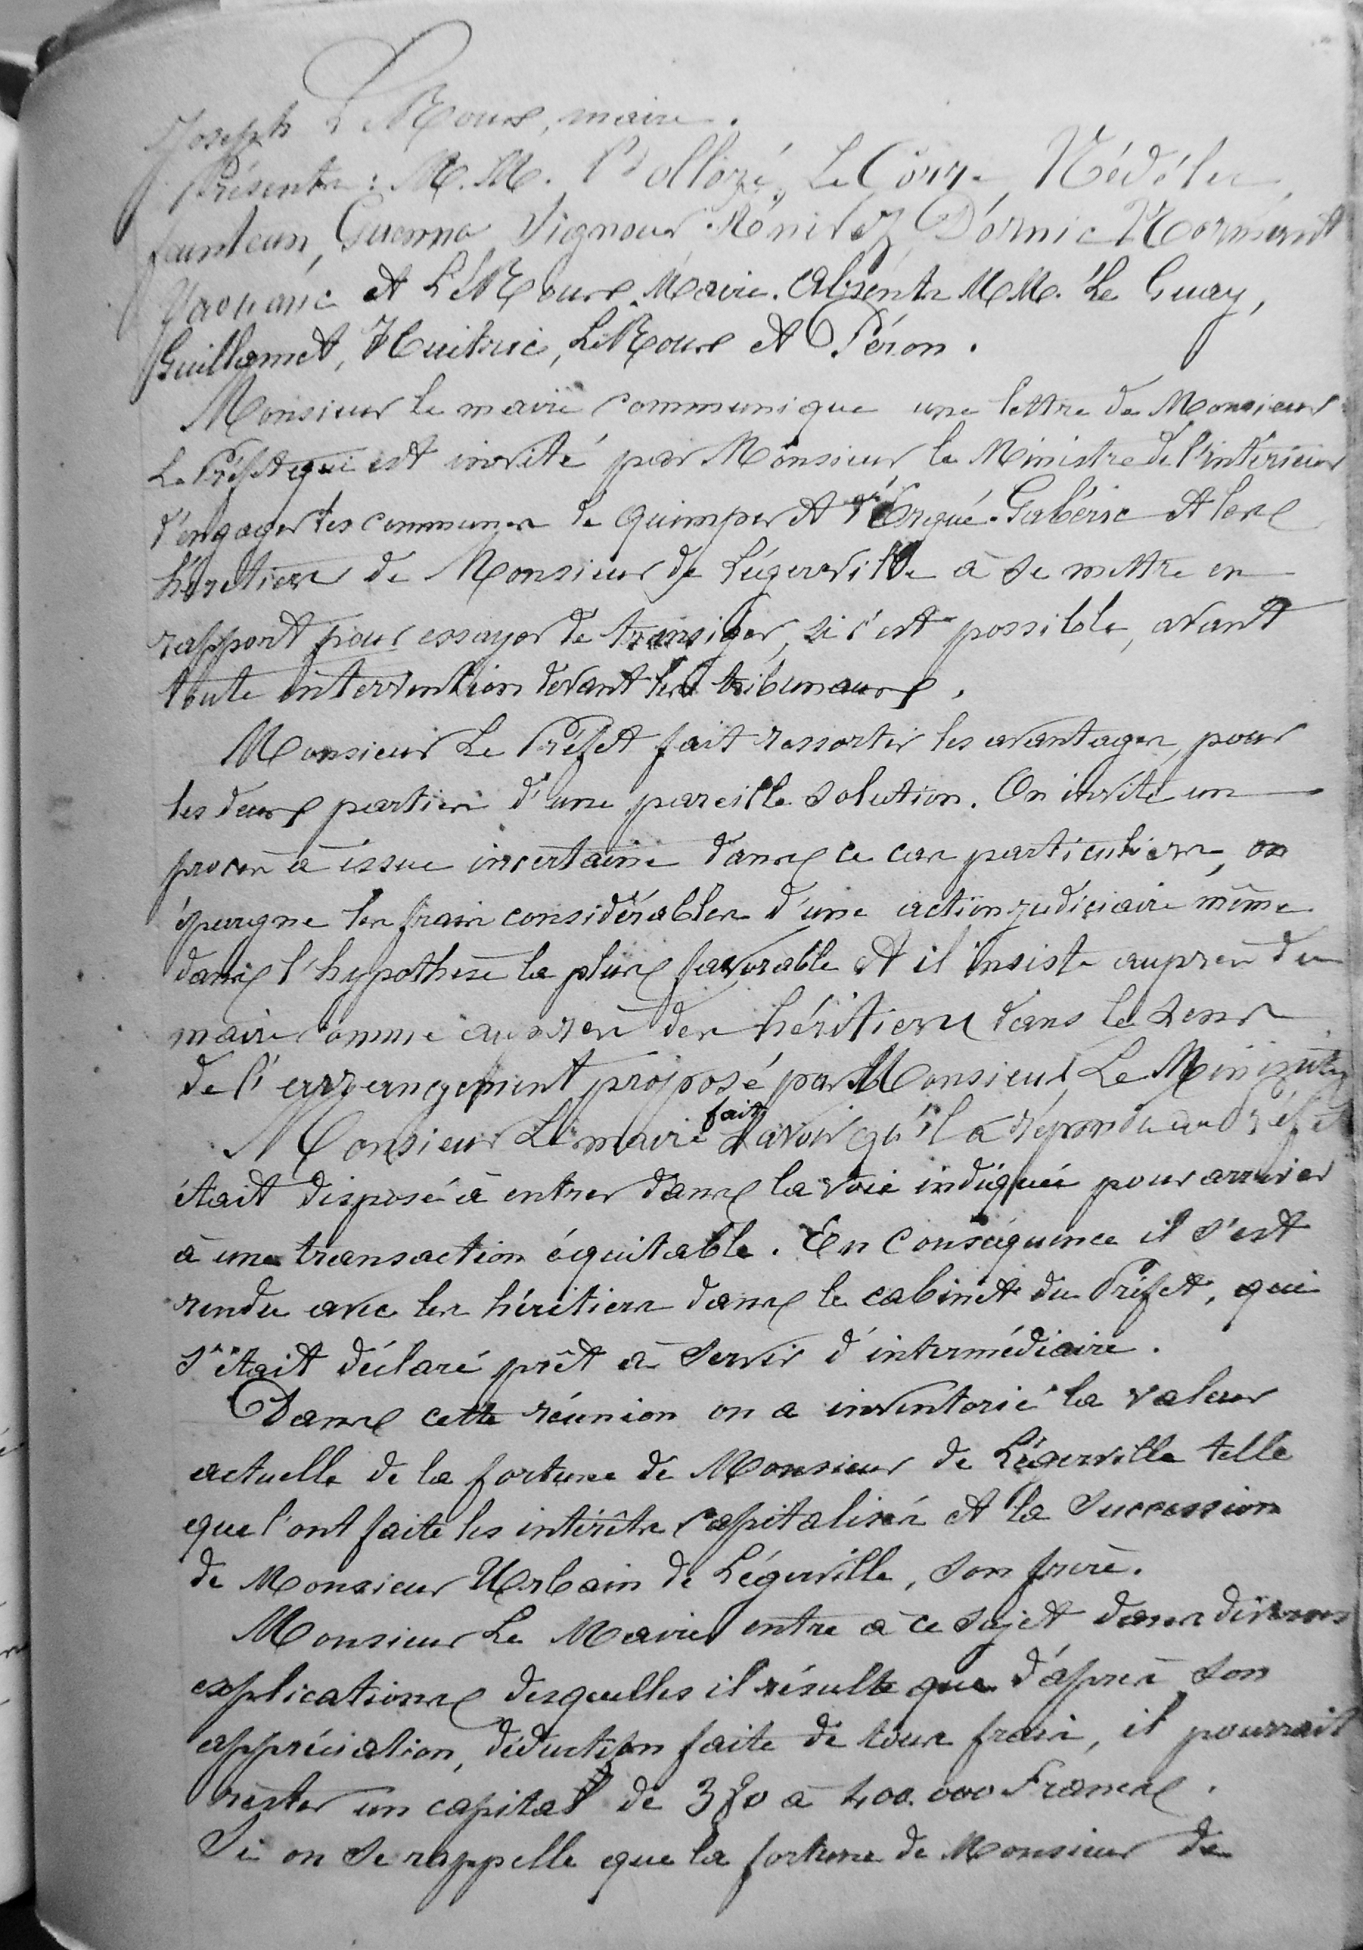 Joseph Le Roux, maire.
Présents : M.M. Bolloré, Le Corre, Nédélec,
Feunteun, Guenno, Signour, Riou, Dornic, Mormant
et Le Roux Maire. Absents M.M. Le Guay,
Guillamet, Huitric, Le Roux et Péron.
Monsieur le maire communique une lettre de Monsieur
Le Préfet qui est invité par Monsieur le Ministre de l'intérieur
d'engager les communes de quimper et d'Ergué-Gabéric et les
héritiers de Monsieur de Légerville à se mettre en
rapport pour essayer de transiger, si c'est possible, avant
toute intervention devant les tribunaux.
Monsieur Le Préfet fait ressortir les avantages, pour
les deux parties d'une pareille solution. On évite un
procès à issue incertaine dans ce cas particuliers, on
épargne les frais considérables d'une action judiciaire même
dans l'hypothèse la plus favorable et il insiste auprès du
maire comme auprès des héritiers dans le sens
de l'arrangement proposé par Monsieur Le Ministre
Monsieur Le maire fait savoir qu'il a répondu au Préfet
était disposé à entrer dans la voie indiquée pour arriver
à une transaction équitable. En Conséquence il s'est
rendu avec les héritiers dans le cabinet du Préfet, qui
s'était déclaré prêt à servir d'intermédiaire.
Dans cette réunion on a inventorié la valeur
actuelle de la fortune de Monsieur de Légerville telle
que l'ont faite les intérêts capitalisés et la succession
de Monsieur Urbain de Légerville, son frère.
Monsieur Le Maire entre à ce sujet dans diverses
explications desquelles il résulte que d'après son
appréciation, déduction faite de tous frais, il pourrait
rester un capital de 380 à 400.000 Francs.
Si on se rappelle que la fortune de Monsieur de